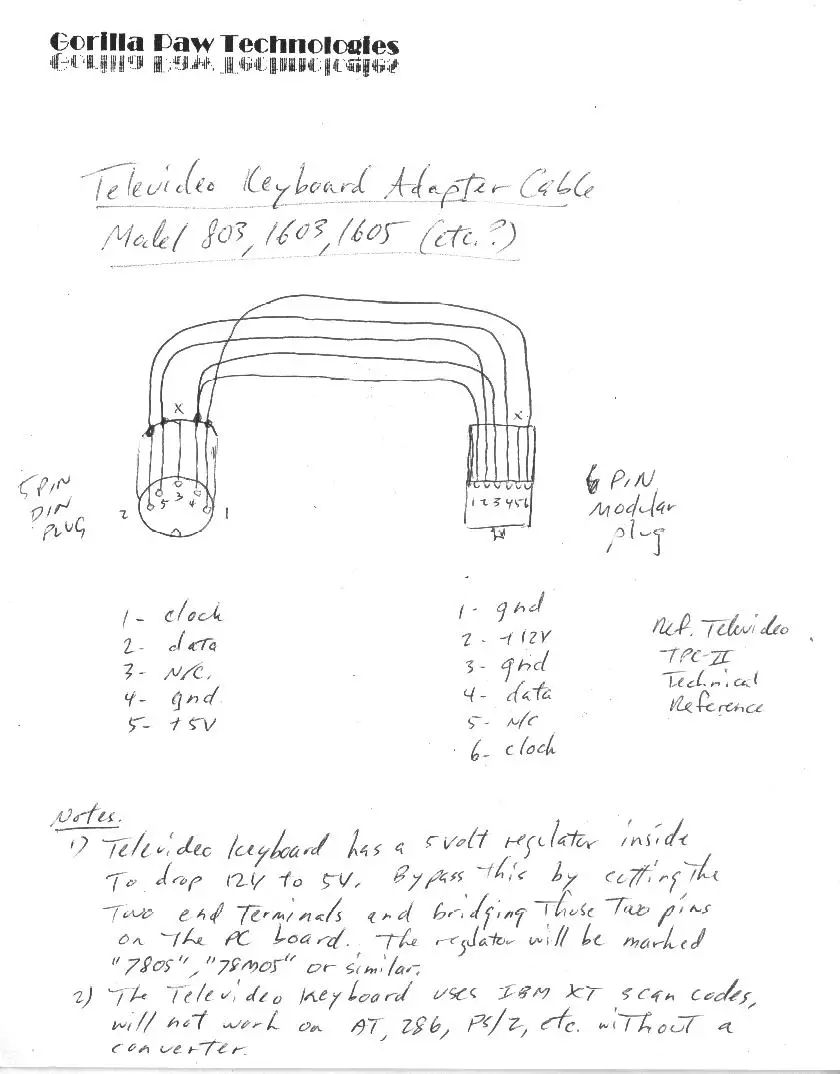 Gorilla Paw Technologies
Televideo Keyboard Adapter Cable
Model 803, 1603, 1605 (etc.?)
X
X
5 PIN
DIN
PLUG
2 5 3 4 1
1 2 3 4 5 6
6 PIN
Modular
plug
1- clock
2- data
3- N/C.
4- gnd
5- +5V
1- gnd
2- +12V
3- gnd
4- data
5- N/C
6- clock
Ref. Televideo
TPC-II
Technical
Reference
Notes.
1) Televideo keyboard has a 5 volt regulator inside
To drop 12V to 5V. Bypass this by cutting The
Two end Terminals and bridging Those Two pins
on The PC board. The regulator will be marked
"7805", "78M05" or similar.
2) The Televideo keyboard uses IBM XT scan codes,
will not work on AT, 286, PS/2, etc. without a
converter.